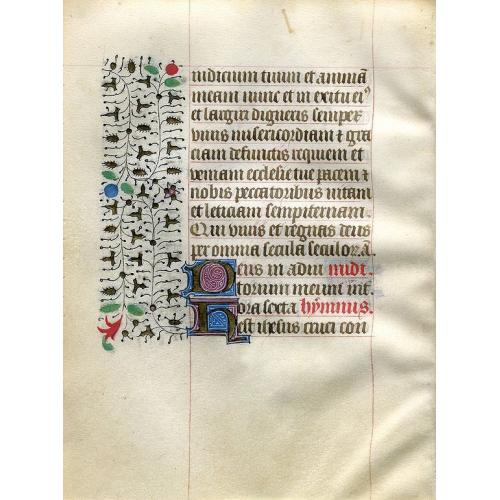 iudicium tuum et animā
meam nunc et in exitu ei⁹
et largiri digneris semper
viuis misericordiam ⁊ gra
ciam defunctis requiem et
veniam ecclesie tue pacem ⁊
nobis peccatoribus uitam
et leticiam sempiternam.
Qui viuis et regnas deus
per omnia secula seculorā.
Deus in adiu
torium meum int.
Hora sexta hȳmnus.
est ihesus cruci con